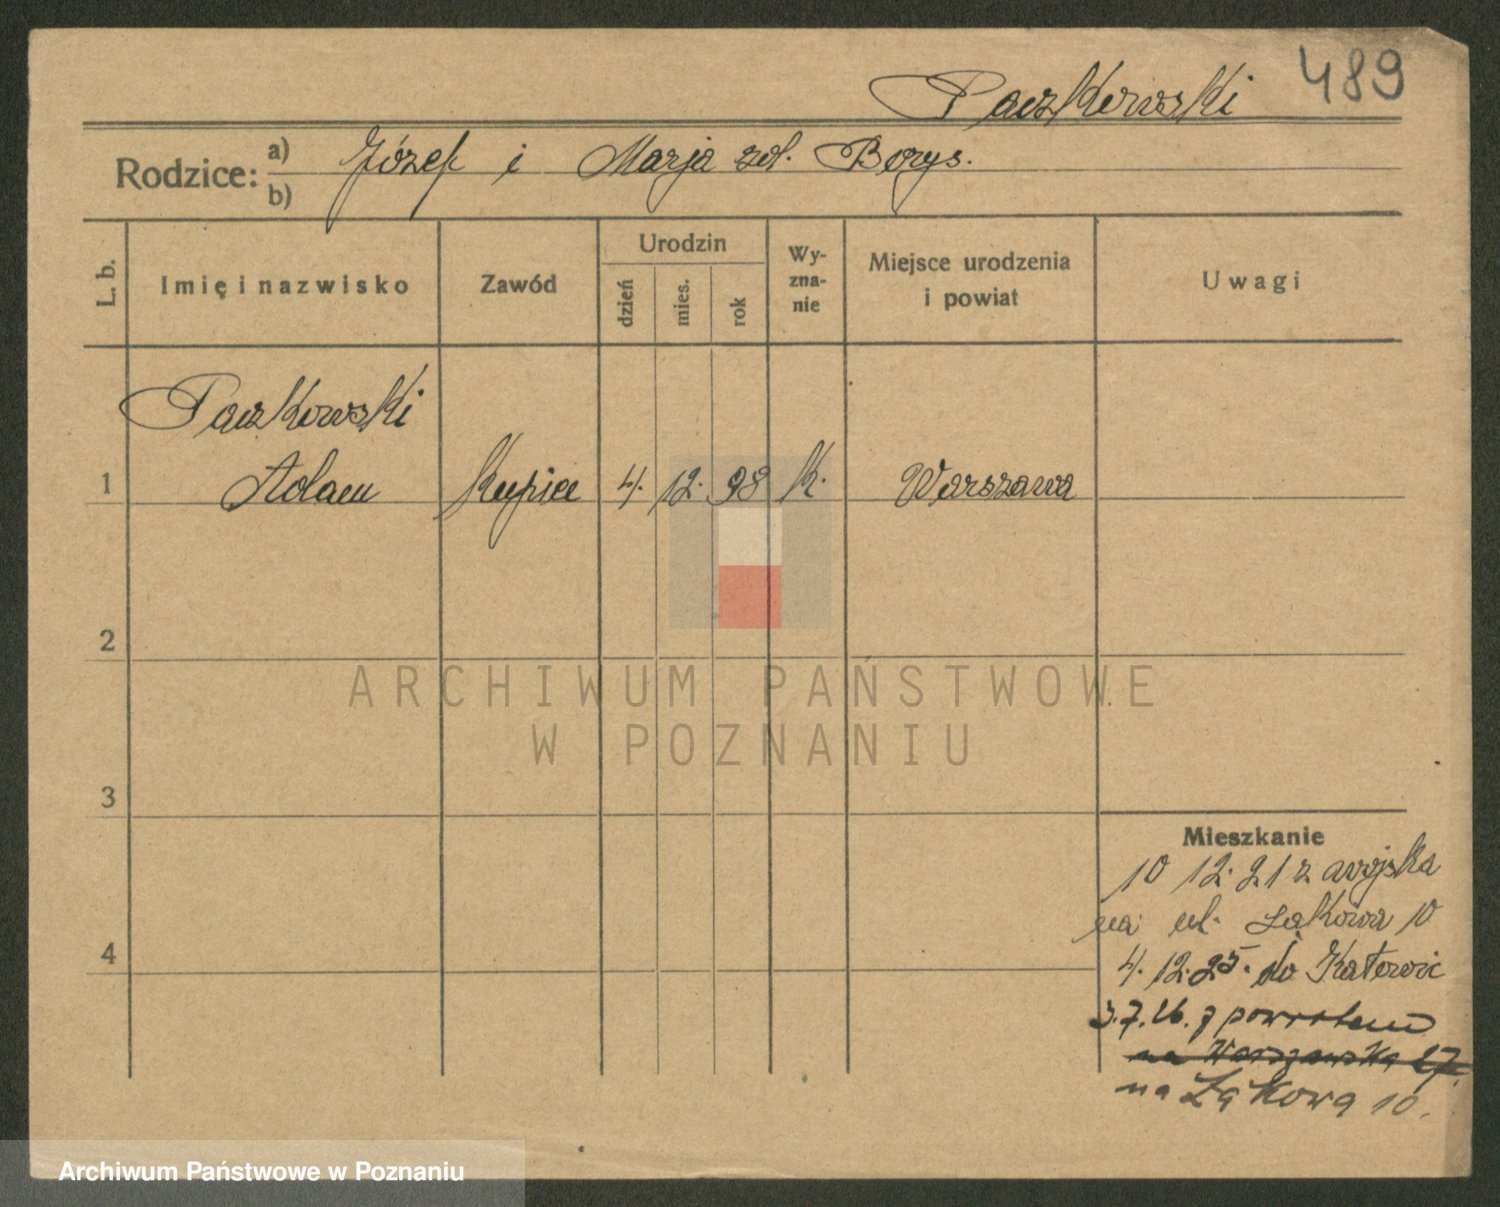 Paczkowski 489
Rodzice: a) Józef i Marja zd. Borys.
b)
L. b.
Imię i nazwisko
Zawód
Urodzin
dzień
mies.
rok
Wy-
zna-
nie
Miejsce urodzenia
i powiat
Uwagi
Paczkowski
1 Adam Kupiec 4. 12. 98 K. Warszawa
2
3
4
ARCHIWUM PAŃSTWOWE
W POZNANIU
Mieszkanie
10 12. 21 z wojska
na ul. Łąkowa 10
4. 12. 25. do Katowic
3. 7. 26. z powrotem
na Warszawska 27.
na Łąkowa 10.
Archiwum Państwowe w Poznaniu